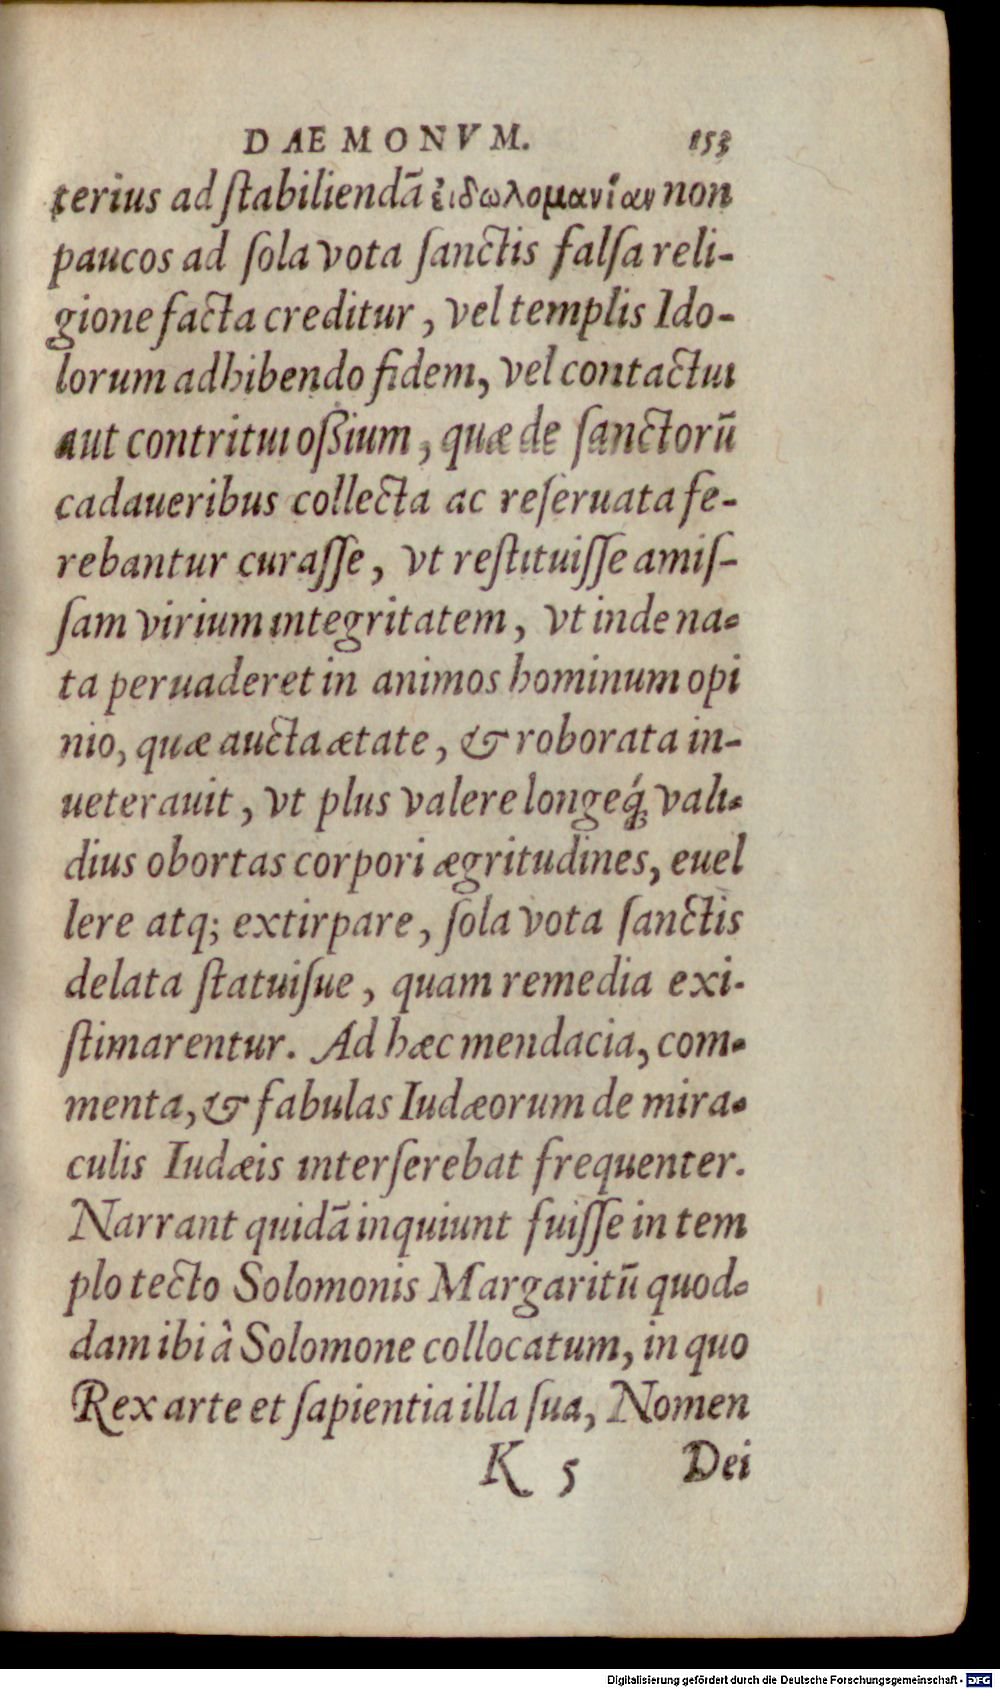 DAEMONVM. 153
terius ad ſtabiliendã ἐιδωλομανίαν non
paucos ad ſola vota ſanctis falſa reli-
gione facta creditur, vel templis Ido-
lorum adhibendo fidem, vel contactui
aut contritui oßium, quæ de ſanctorũ
cadaueribus collecta ac reſeruata fe-
rebantur curaſſe, vt reſtituiſſe amiſ-
ſam virium integritatem, vt inde na-
ta peruaderet in animos hominum opi
nio, quæ aucta ætate, & roborata in-
ueterauit, vt plus valere longeq́; vali-
dius obortas corpori ægritudines, euel
lere atq; extirpare, ſola vota ſanctis
delata ſtatuiſue, quam remedia exi-
ſtimarentur. Ad hæc mendacia, com-
menta, & fabulas Iudæorum de mira-
culis Iudæis interſerebat frequenter.
Narrant quidã inquiunt fuiſſe in tem
plo tecto Solomonis Margaritũ quod-
dam ibi â Solomone collocatum, in quo
Rex arte et ſapientia illa ſua, Nomen
K 5 Dei
Digitalisierung gefördert durch die Deutsche Forschungsgemeinschaft - DFG